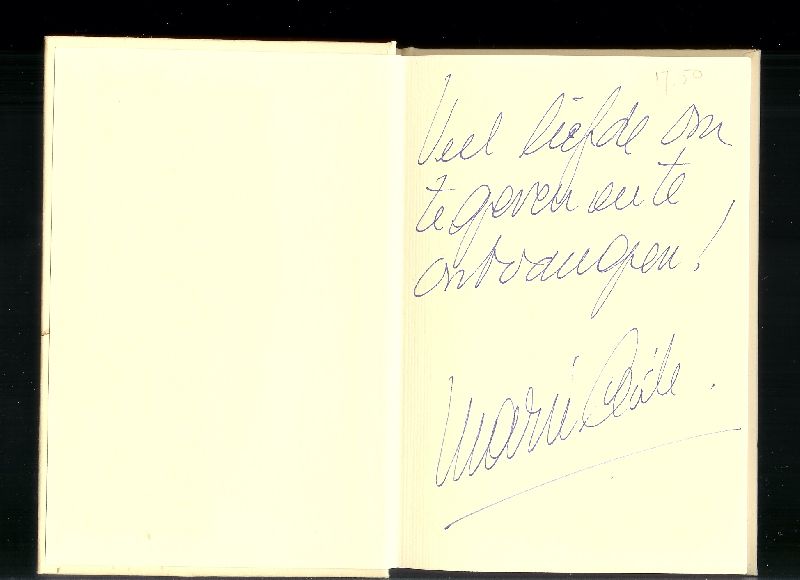 17.50
Veel liefde om
te geven en te
ontvangen!
Marie Cécile.